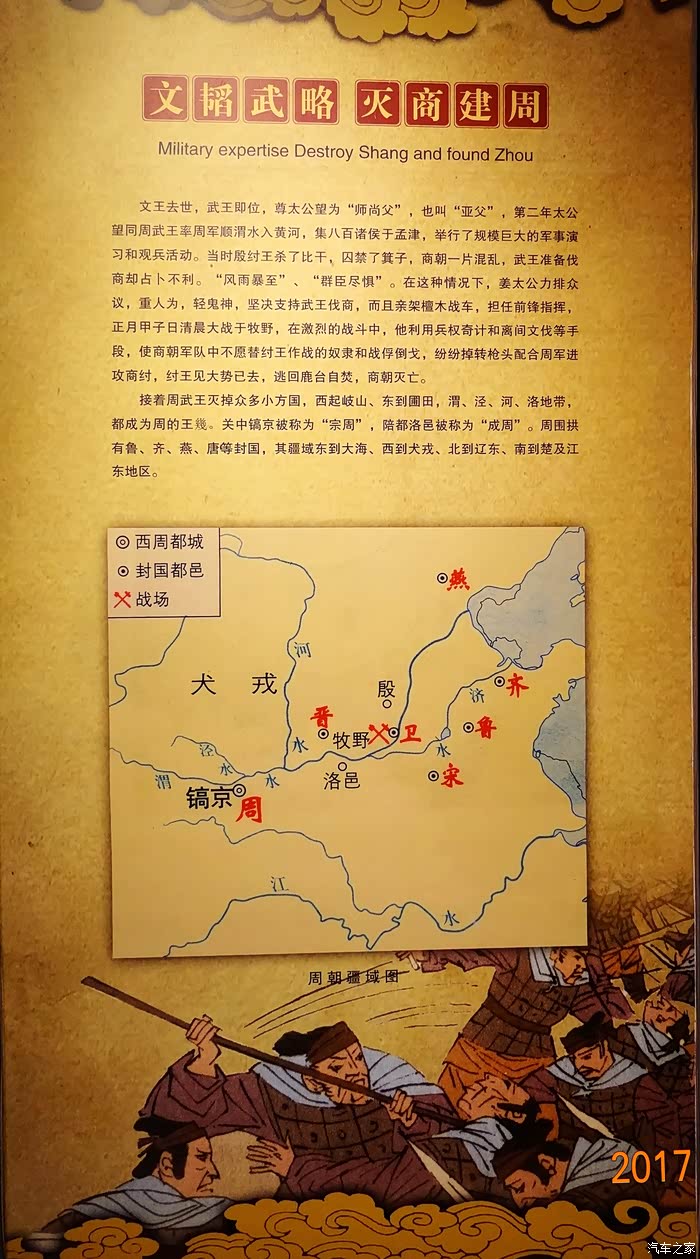 文韬武略 灭商建周
Military expertise Destroy Shang and found Zhou
文王去世，武王即位，尊太公望为“师尚父”，也叫“亚父”，第二年太公
望同周武王率周军顺渭水入黄河，集八百诸侯于孟津，举行了规模巨大的军事演
习和观兵活动。当时殷纣王杀了比干，囚禁了箕子，商朝一片混乱，武王准备伐
商却占卜不利。“风雨暴至”、“群臣尽惧”。在这种情况下，姜太公力排众
议，重人为，轻鬼神，坚决支持武王伐商，而且亲架檀木战车，担任前锋指挥，
正月甲子日清晨大战于牧野，在激烈的战斗中，他利用兵权奇计和离间文伐等手
段，使商朝军队中不愿替纣王作战的奴隶和战俘倒戈，纷纷掉转枪头配合周军进
攻商纣，纣王见大势已去，逃回鹿台自焚，商朝灭亡。
接着周武王灭掉众多小方国，西起岐山、东到圃田，渭、泾、河、洛地带，
都成为周的王幾。关中镐京被称为“宗周”，陪都洛邑被称为“成周”。周围拱
有鲁、齐、燕、唐等封国，其疆域东到大海、西到犬戎、北到辽东、南到楚及江
东地区。
西周都城
封国都邑
战场
燕
河
犬 戎
殷
济
齐
晋
水
牧野
卫
鲁
水
泾
水
渭
水
洛邑
宋
镐京
周
江
水
周朝疆域图
2017
汽车之家